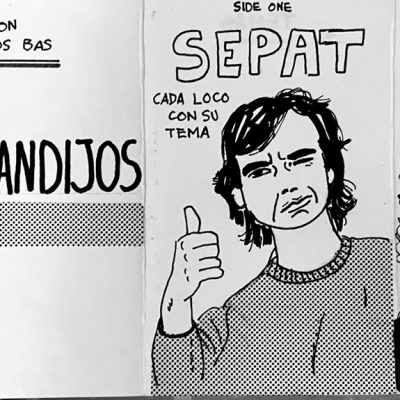 ON
OS BAS
ANDIJOS
SIDE ONE
SEPAT
CADA LOCO
CON SU
TEMA